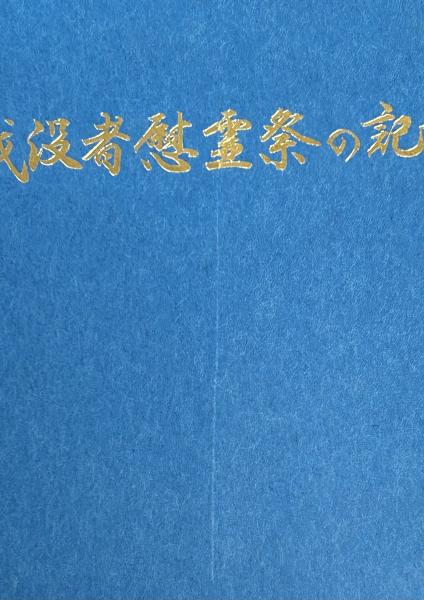 戦没者慰霊祭の記